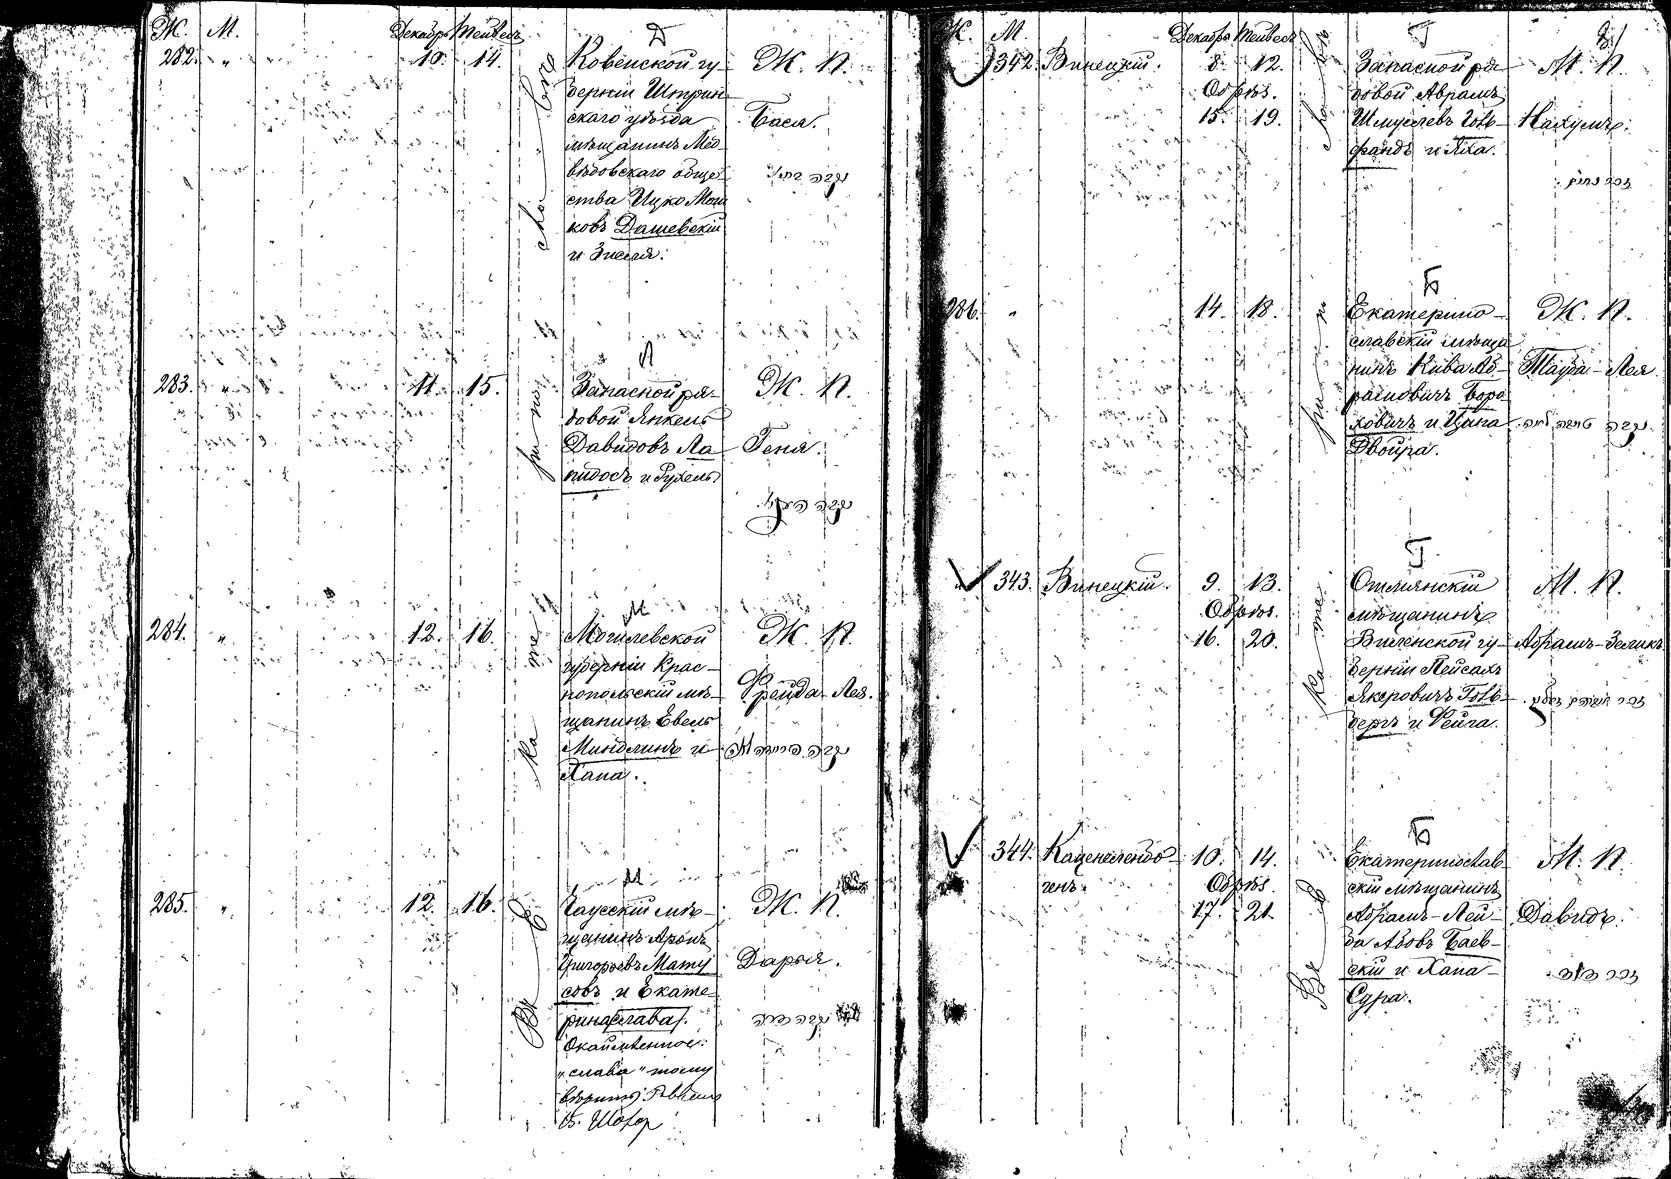 Ж. М. Декабрь Тейвесъ Д
282. " " 10. 14.
Ковенской гу-
берніи
скаго уѣзда
мѣщанинъ Мед-
вѣдовскаго обще-
ства Ицко Мош-
ковъ Дашевскій
и Зисля.
Ж. П.
Бася.
Л
283. " 11. 15.
Запасной ря-
довой Янкель
Давидовъ Ла-
пидосъ и Рухель
Ж. П.
Геня.
М
284. " 12. 16.
Могилевской
губерніи Крас-
нопольскій мѣ-
щанинъ Евель
Миндлинъ и
Хана.
Ж. П.
Фрейда-Лея.
М
285. " 12. 16.
Чаусскій мѣ-
щанинъ Аронъ
Григорьевъ Мату-
совъ и Екате-
рина (слава).
Окаймленное:
"слава" тому
вѣрить:
Ж. П.
Дарья.
Въ Екатеринославѣ
Ж. М. Декабрь Тейвесъ Г
342. Винецкій. 8. 12.
Обрѣз.
15. 19.
Запасной ря-
довой Абрамъ
Шмуйлевъ Гель-
фандъ и Хая.
М. П.
Нахумъ.
Б
286. " 14. 18.
Екатерино-
славскій мѣща-
нинъ Кива Аб-
рамовичъ Боро-
ховичъ и Ципа
Двойра.
Ж. П.
Тауба-Лея.
נקבה טויבה לאה
Г
343. Винецкій. 9. 13.
Обрѣз.
16. 20.
Ошмянскій
мѣщанинъ
Виленской гу-
берніи Пейсахъ
Якеровичъ Голь-
бергъ и Фейга.
М. П.
Абрамъ-Зеликъ
זכר אברהם זעליג
Б
344. Каценеленбо-
генъ. 10. 14.
Обрѣз.
17. 21.
Екатеринослав-
скій мѣщанинъ
Абрамъ-Лей-
ба Абовъ Баев-
скій и Хана-
Сура.
М. П.
Давидъ.
זכר דוד
Въ Екатеринославѣ